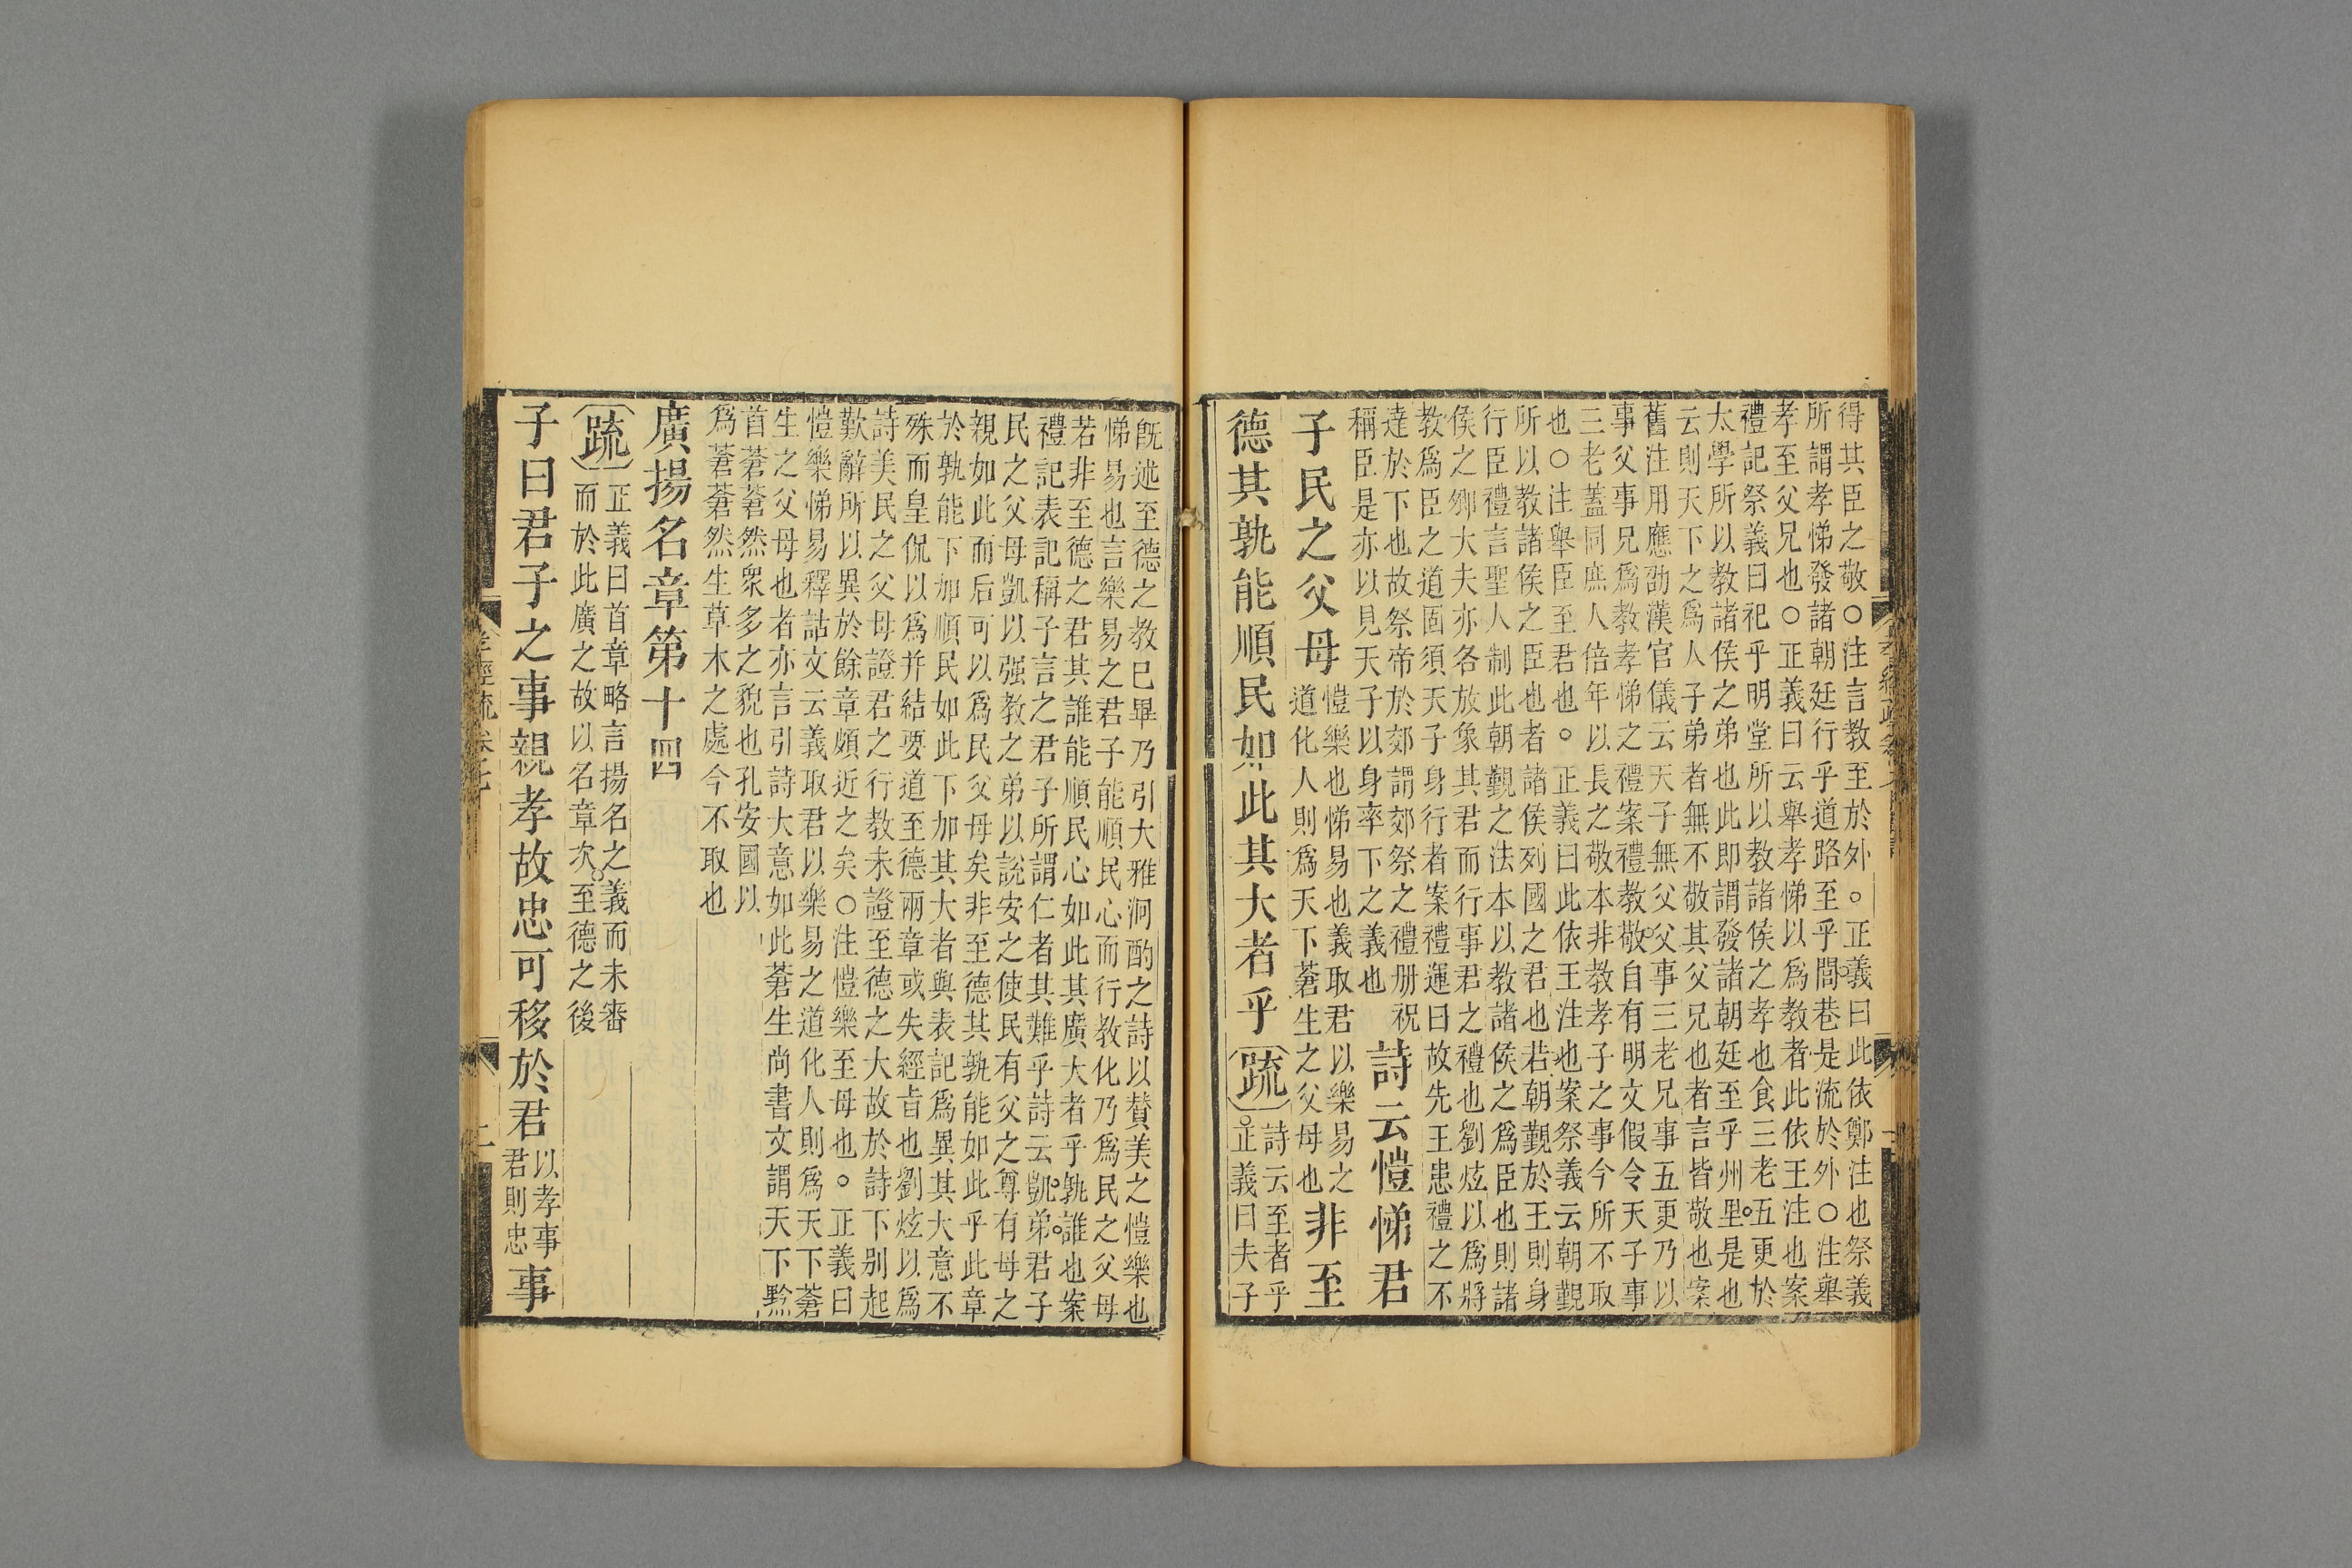 得其臣之敬○注言教至於外。正義曰此依鄭注也祭義
所謂孝悌發諸朝廷行乎道路至乎閭巷是流於外○注舉
孝至父兄也○正義曰云舉孝悌以爲教者此依王注也案
禮記祭義曰祀乎明堂所以教諸侯之孝也食三老五更於
太學所以教諸侯之弟也此即謂發諸朝廷至乎州里是也
云則天下之爲人子弟者無不敬其父兄也者言皆敬也案
舊注用應劭漢官儀云天子無父父事三老兄事五更乃以
事父事兄爲教孝悌之禮案禮教敬自有明文假令天子事
三老蓋同庶人倍年以長之敬本非教孝子之事今所不取
也○注舉臣至君也。正義曰此依王注也案祭義云朝覲
所以教諸侯之臣也者諸侯列國之君也若朝覲於王則身
行臣禮言聖人制此朝覲之法本以教諸侯之爲臣也則諸
侯之卿大夫亦各放象其君而行事君之禮也劉炫以爲將
教爲臣之道固須天子身行者案禮運曰故先王患禮之不
達於下也故祭帝於郊謂郊祭之禮冊祝
稱臣是亦以見天子以身率下之義也
詩云愷悌君
子民之父母
愷樂也悌易也義取君以樂易之
道化人則爲天下蒼生之父母也
非至
德其孰能順民如此其大者乎
疏
詩云至者乎
○正義曰夫子
既述至德之教已畢乃引大雅泂酌之詩以贊美之愷樂也
悌易也言樂易之君子能順民心而行教化乃爲民之父母
若非至德之君其誰能順民心如此其廣大者乎孰誰也案
禮記表記稱子言之君子所謂仁者其難乎詩云凱弟君子
民之父母凱以强教之弟以説安之使民有父之尊有母之
親如此而后可以爲民父母矣非至德其孰能如此乎此章
於孰能下加順民如此下加其大者與表記爲異其大意不
殊而皇侃以爲并結要道至德兩章或失經旨也劉炫以爲
詩美民之父母證君之行教未證至德之大故於詩下别起
歎辭所以異於餘章頗近之矣○注愷樂至母也。正義曰
愷樂悌易釋詁文云義取君以樂易之道化人則爲天下蒼
生之父母也者亦言引詩大意如此蒼生尚書文謂天下黔
首蒼蒼然衆多之貌也孔安國以
爲蒼蒼然生草木之處今不取也
廣揚名章第十四
疏
正義曰首章略言揚名之義而未審
而於此廣之故以名章次至德之後
子曰君子之事親孝故忠可移於君
以孝事
君則忠
事